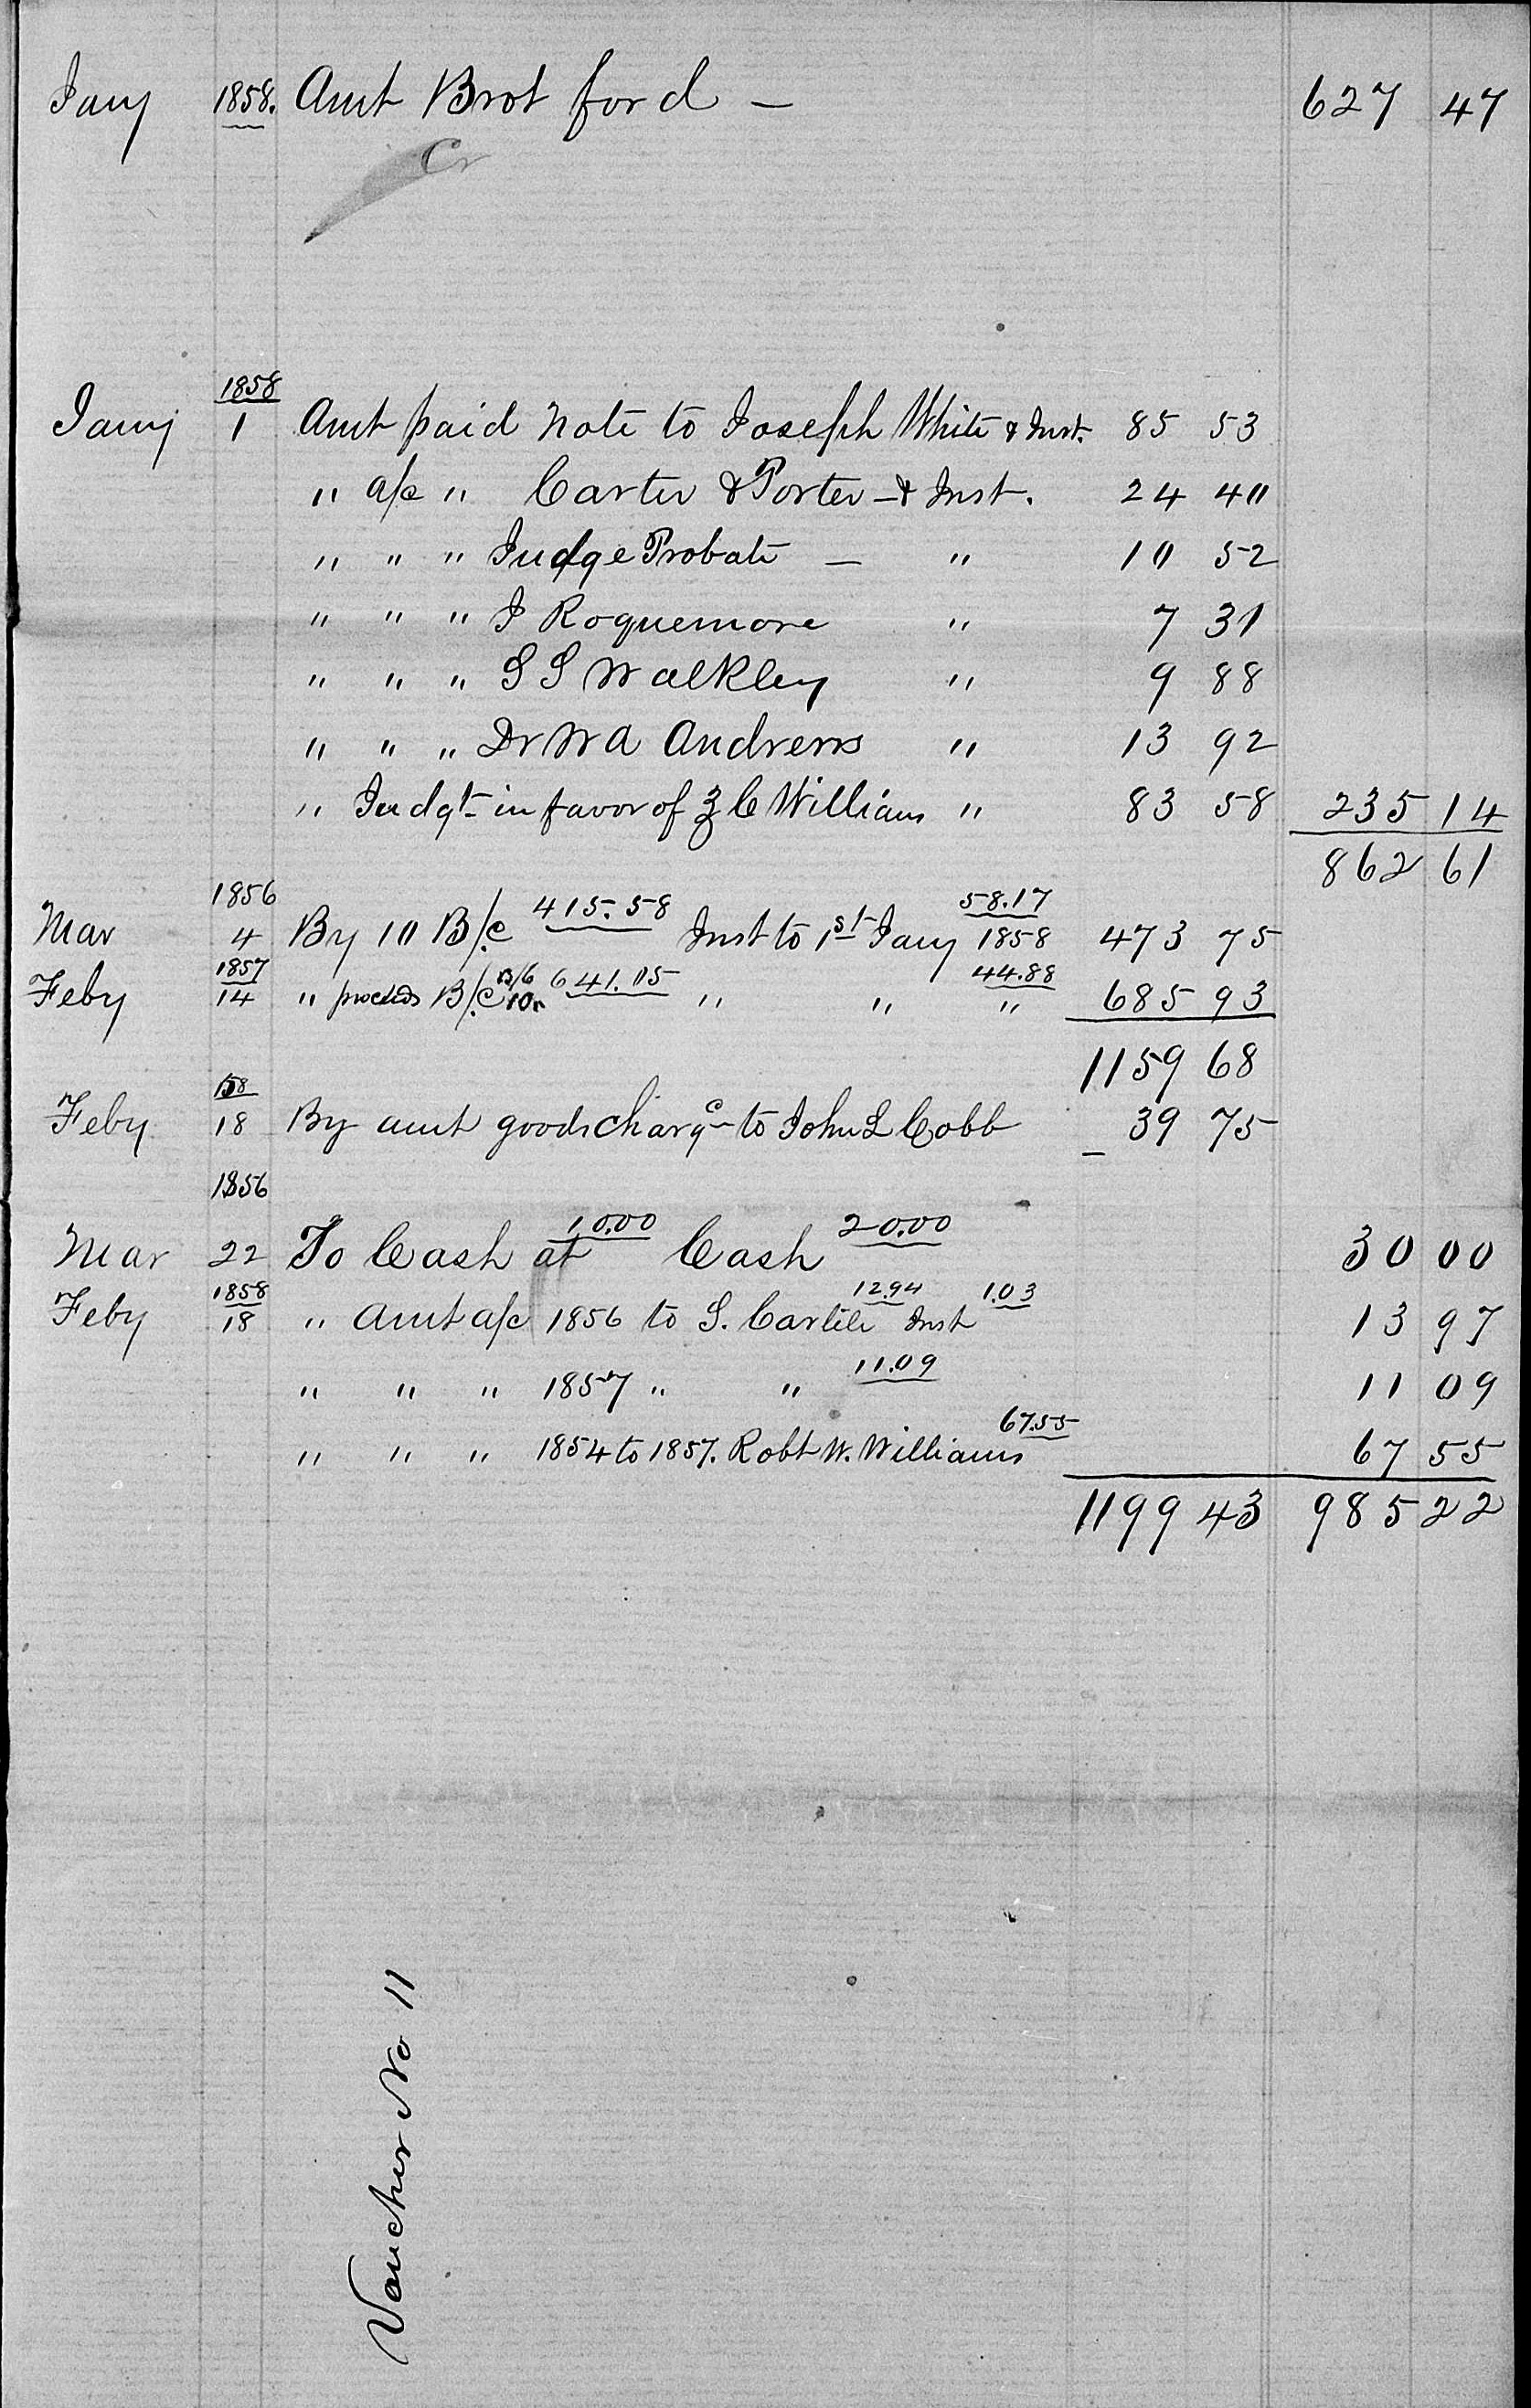 Jany 1858. Amt Brot ford — 627 47
Cr
1858
Jany 1 Amt paid note to Joseph White & Inst. 85 53
" a/c " Carter & Porter — & Inst. 24 40
" " " Judge Probate — " 10 52
" " " J Roquemore " 7 31
" " " S S Walkley " 9 88
" " " Dr W A Andrews " 13 92
" Judgt in favor of Z C William " 83 58 235 14
862 61
1856
Mar 4 By 10 B/C 415.58 Inst to 1st Jany 1858 58.17 473 75
1857
Feby 14 " proceeds B/C 641.05 " " " 44.88 685 93
1159 68
58
Feby 18 By amt goods charge to John L Cobb 39 75
1856
Mar 22 To Cash at 10.00 Cash 20.00 30 00
1858
Feby 18 " Amt a/c 1856 to S. Carlile 12.94 Inst 1.03 13 97
" " " 1857 " " 11.09 11 09
" " " 1854 to 1857. Robt W. Williams 67.55 67 55
1199 43 985 22
Voucher No 11